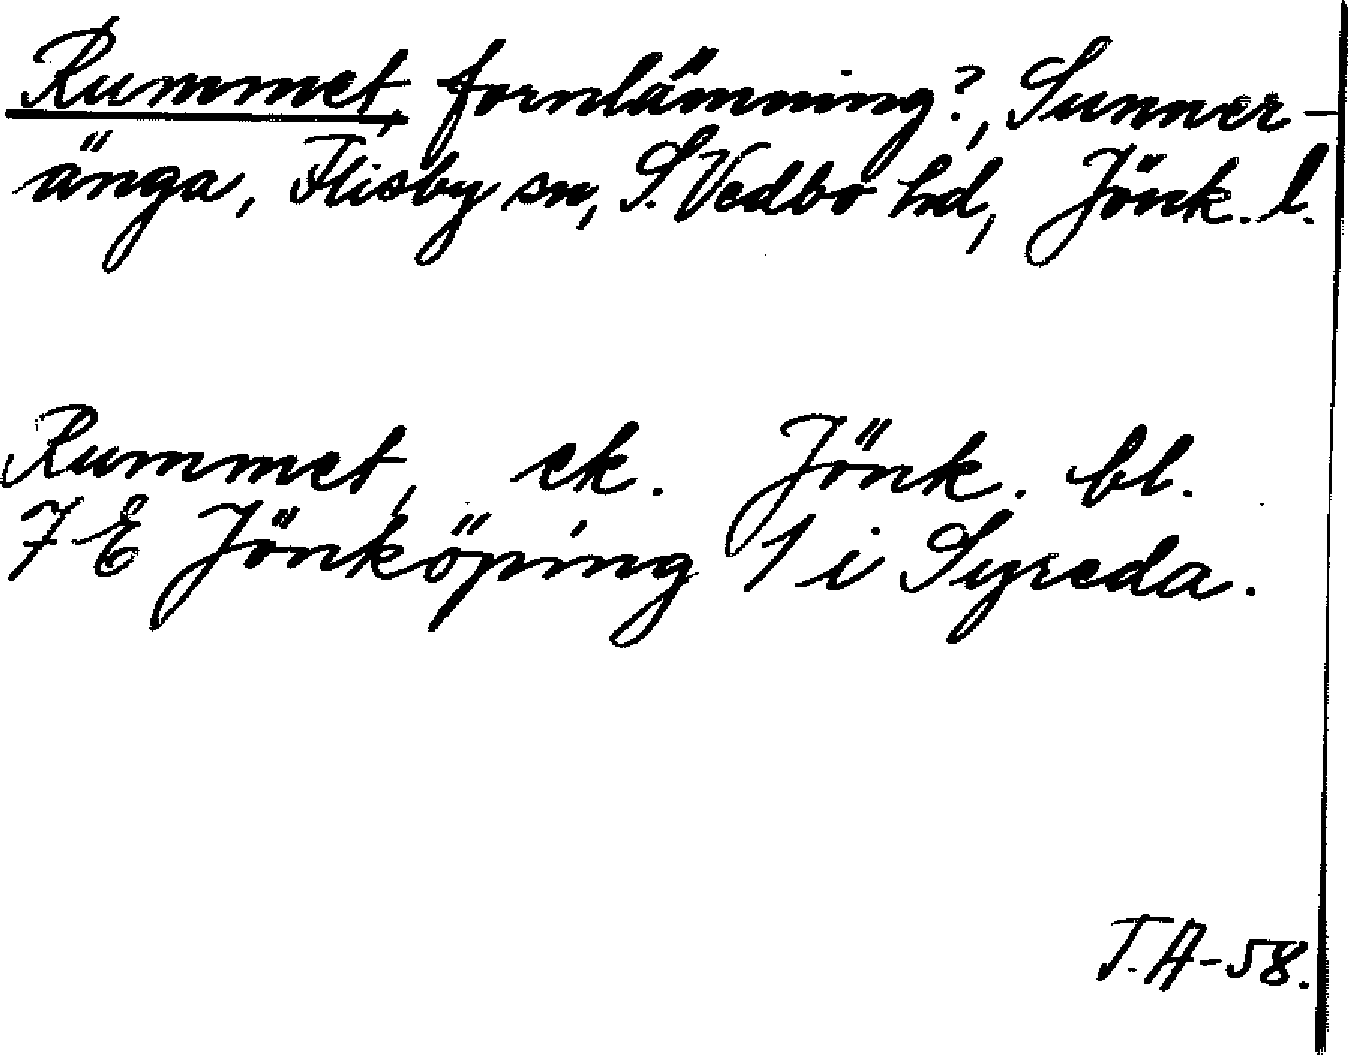 Rummet, fornlämning?, Sunner-
änga, Flisby sn, S. Vedbo hd, Jönk. l.
Rummet, ek. Jönk. bl.
7 E Jönköping 1 i Syreda.
T. A-58.